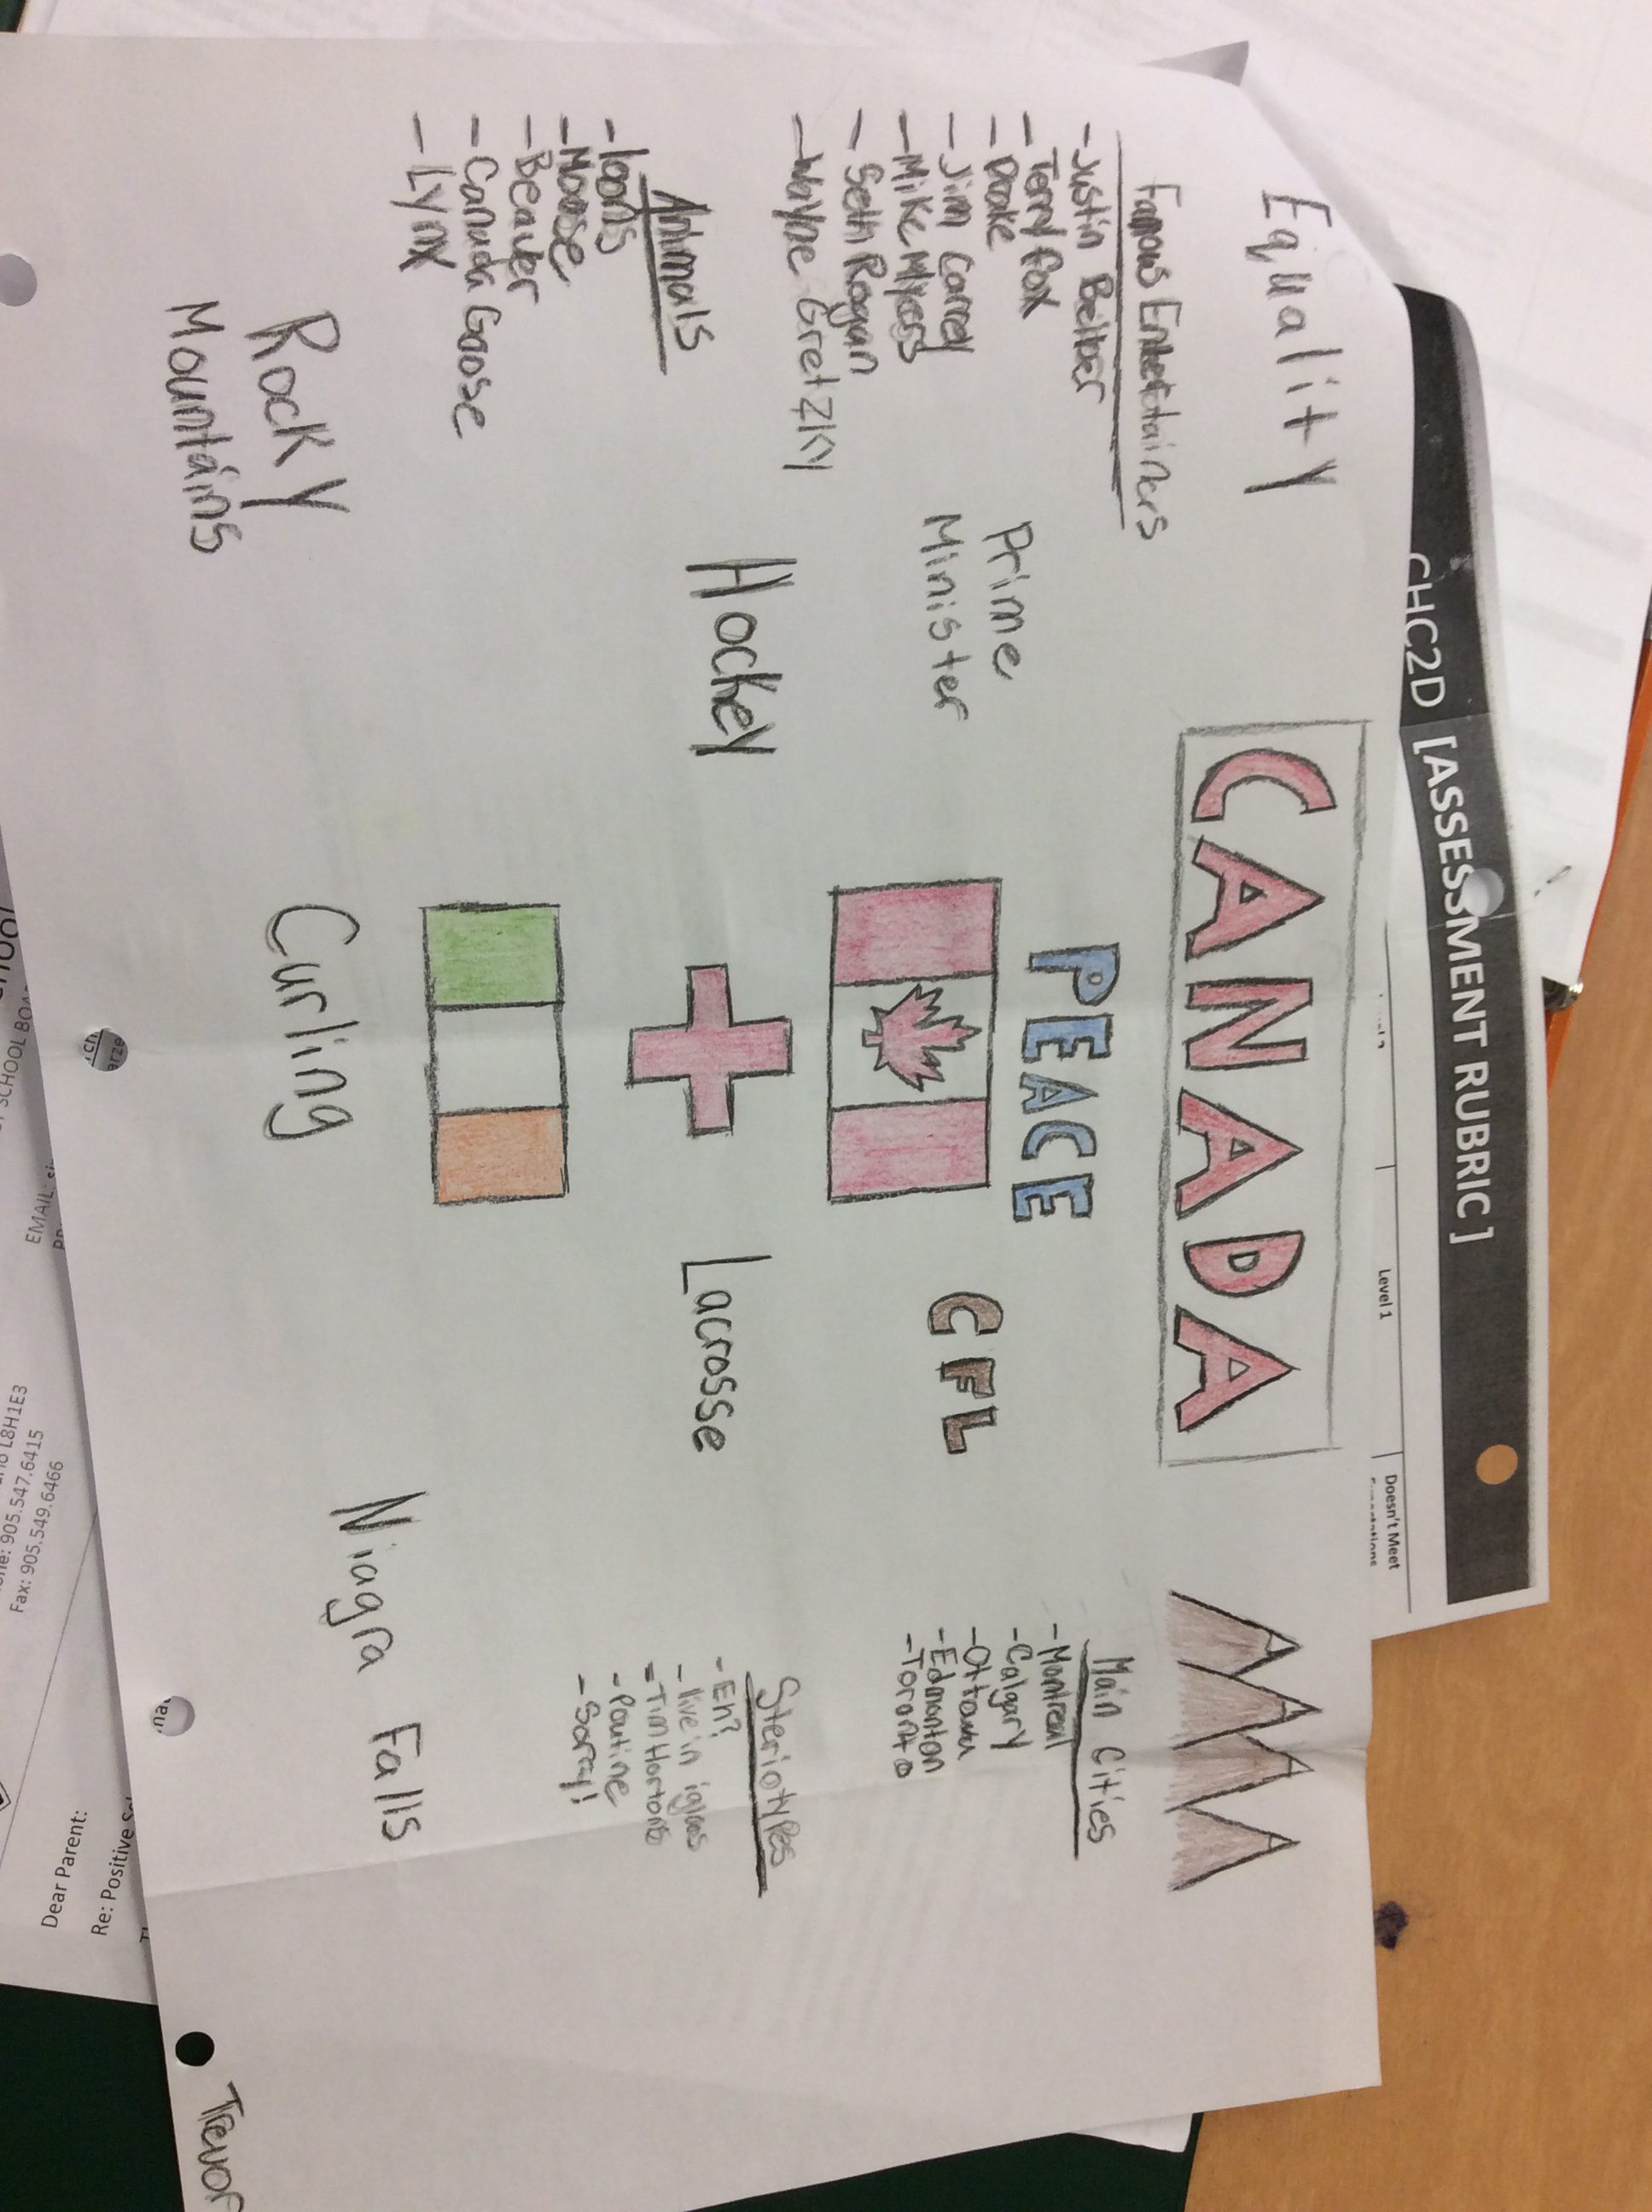 CHC2D [ASSESSMENT RUBRIC]
Level 1
Doesn't Meet
CANADA
Equality
PEACE
Famous Entertainers
- Justin Beiber
- Terry Fox
- Drake
- Jim Carrey
- Mike Myers
- Seth Rogan
- Wayne Gretzky
Prime
Minister
CFL
Main Cities
- Montreal
- Calgary
- Ottawa
- Edmonton
- Toronto
Hockey
Lacrosse
Steriotypes
- Eh?
- live in igloos
- Tim Hortons
- Poutine
- Sorry!
Animals
- loons
- Moose
- Beaver
- Canada Goose
- Lynx
Rocky
Mountains
Curling
Niagra Falls
Trevor
SCHOOL BOA
EMAIL:
L8H1E3
905.547.6415
Fax: 905.549.6466
Dear Parent:
Re: Positive